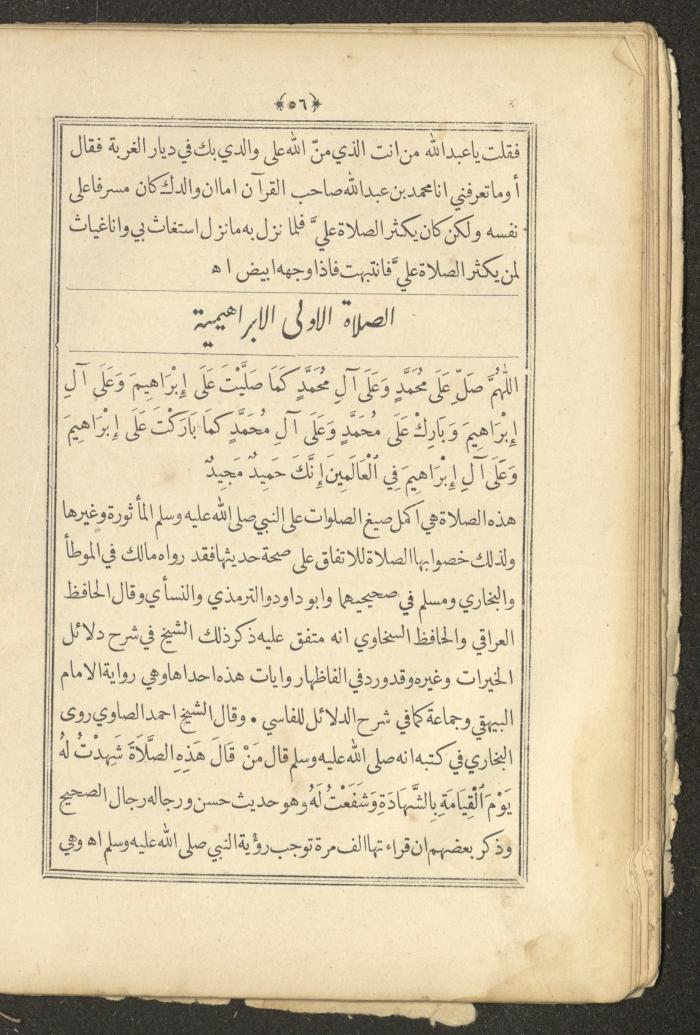 ﴿٥٦﴾
فقلت ياعبدالله من انت الذي منّ الله على والدي بك في ديار الغربة فقال
أوماتعرفني انا محمد بن عبدالله صاحب القرآن اما ان والدك كان مسرفا على
نفسه ولكن كان يكثر الصلاة عليّ فلما نزل به مانزل استغاث بي وانا غياث
لمن يكثر الصلاة عليّ فانتبهت فاذا وجهه ابيض اه
الصلاة الاولى الابراهيمية
اللّٰهُمَّ صَلِّ عَلَى مُحَمَّدٍ وَعَلَى آلِ مُحَمَّدٍ كَمَا صَلَّيْتَ عَلَى إِبْرَاهِيمَ وَعَلَى آلِ
إِبْرَاهِيمَ وَبَارِكْ عَلَى مُحَمَّدٍ وَعَلَى آلِ مُحَمَّدٍ كَمَا بَارَكْتَ عَلَى إِبْرَاهِيمَ
وَعَلَى آلِ إِبْرَاهِيمَ فِي ٱلْعَالَمِينَ إِنَّكَ حَمِيدٌ مَجِيدٌ
هذه الصلاة هي اكمل صيغ الصلوات على النبي صلى الله عليه وسلم المأثورة وغيرها
ولذلك خصوا بها الصلاة للاتفاق على صحة حديثها فقد رواه مالك في الموطأ
والبخاري ومسلم في صحيحيهما وابو داود والترمذي والنسأي وقال الحافظ
العراقي والحافظ السخاوي انه متفق عليه ذكر ذلك الشيخ في شرح دلائل
الخيرات وغيره وقد ورد في الفاظها روايات هذه احداها وهي رواية الامام
البيهقي وجماعة كما في شرح الدلائل للفاسي • وقال الشيخ احمد الصاوي روى
البخاري في كتبه انه صلى الله عليه وسلم قال مَنْ قَالَ هَذِهِ الصَّلَاةَ شَهِدْتُ لَهُ
يَوْمَ ٱلْقِيَامَةِ بِالشَّهَادَةِ وَشَفَعْتُ لَهُ وهو حديث حسن ورجاله رجال الصحيح
وذكر بعضهم ان قراءتها الف مرة توجب رؤية النبي صلى الله عليه وسلم اه وهي